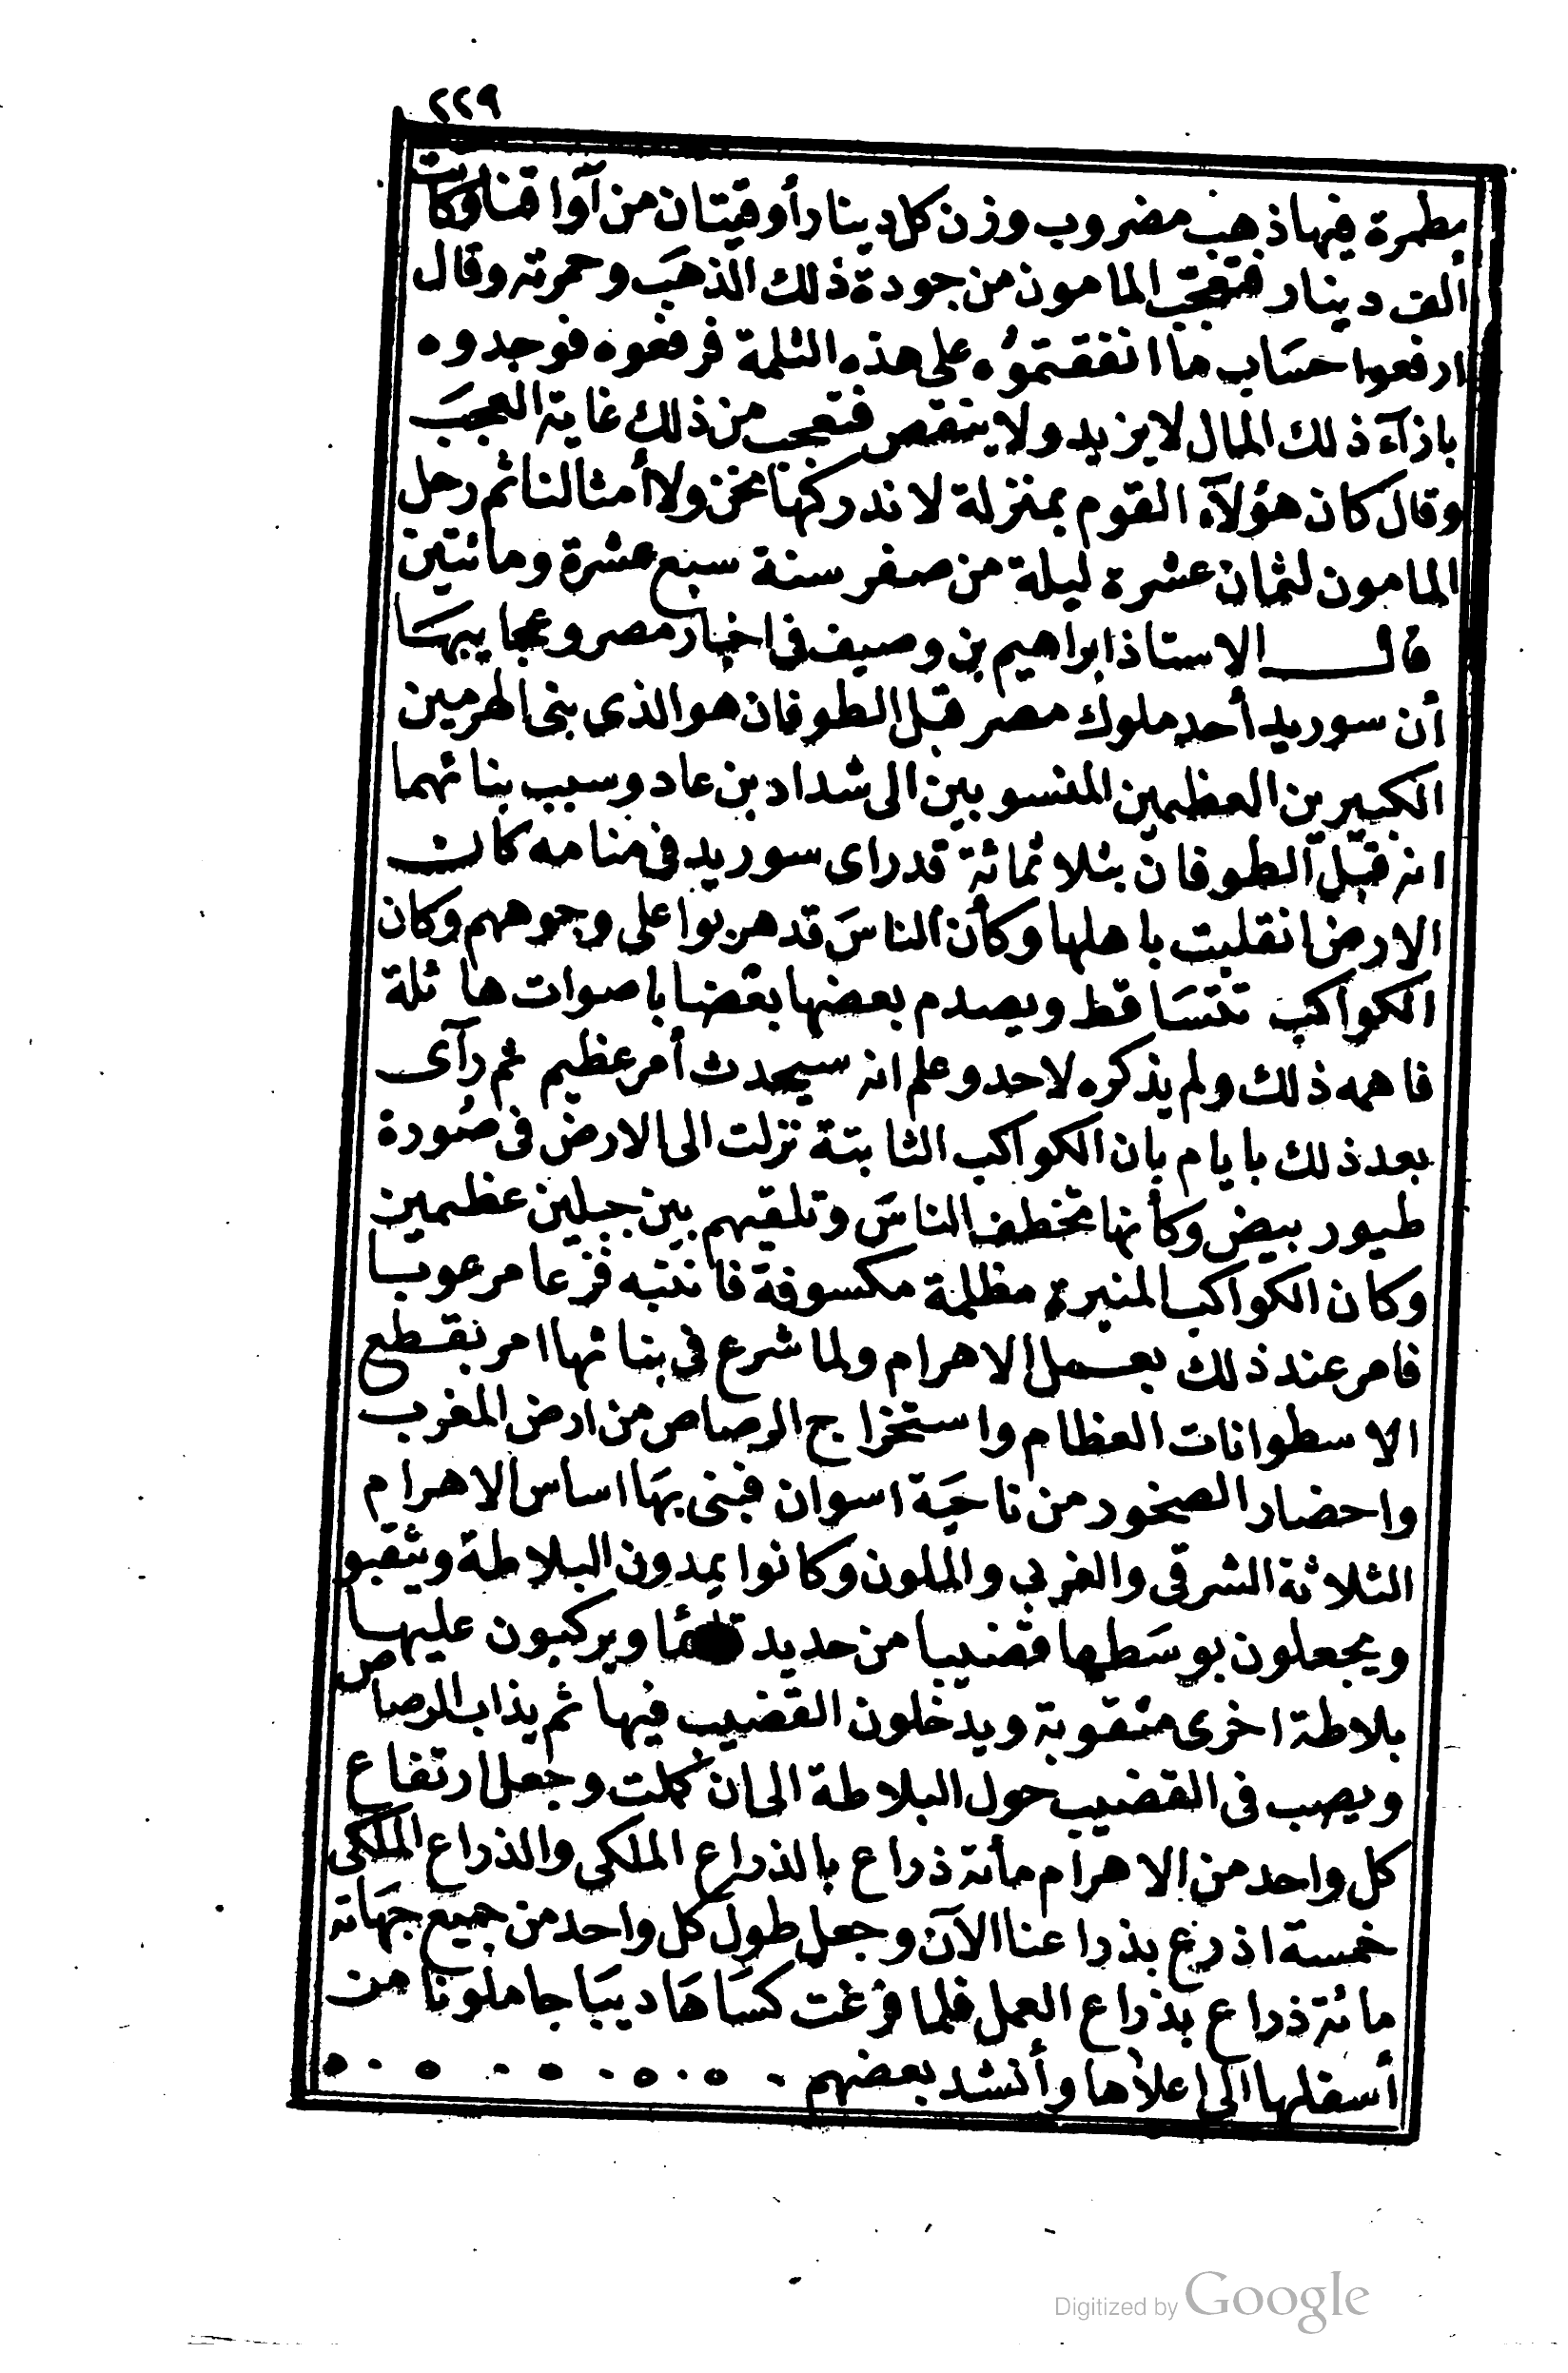 ٢٢٩
بطمرة فيها ذهب مضروب وزن كل دينار أوقيتان من آواقنا وكانت
الف دينار فتعجب المامون من جودة ذلك الذهَب وحمرته وقال
ارفعوا حسَاب ما انفقتموُه على هذه الثلمة فرفعوه فوجدوه
بازآء ذلك المال لا يزيد ولا ينقص فتعجب من ذلك غاية العجبَ
وقال كان هؤلآء القوم بمنزلة لا ندركها نحن ولا أمثالنا ثم رحل
المامون لثمان عشرة ليلة من صفر سنة سبع عشرة ومائتين
قال الاستاذ ابراهيم بن وصيف فى اخبار مصر وعجايبهَا
أن سوريد أحد ملوك مصر قبل الطوفان هو الذى بنى الهرمين
الكبيرين العظيمين المنسوبين الى شداد بن عاد وسبب بنائهما
انه قبل الطوفان بثلاثمائة قد راى سوريد فى منامه كان
الارض انقلبت باهلها وكأن الناسَ قد هربوا على وجوههم وكان
الكواكب تتسَاقط ويصدم بعضها بعضا باصوات هائلة
فاهمه ذلك ولم يذكره لاحد وعلم انه سيحدث أمر عظيم ثم رآى
بعد ذلك بايام بان الكواكب الثابتة نزلت الى الارض فى صُورة
طيور بيض وكأنها تخطف الناسَ وتلقيهم بين جبلين عظيمين
وكان الكواكب المنيرة مظلمة مكسوفة فانتبه فزعا مرعوبا
فامر عند ذلك بعمل الاهرام ولما شرع فى بنائها امر بقطع
الاسطوانات العظام واستخراج الرصاص من ارض المغرب
واحضار الصخود من ناحيَة اسوان فبنى بهَا اساس الاهرام
الثلاثة الشرقى والغربى والملون وكانوا يمدون البلاطة ويثقبو
ويجعلون بوسَطها قضيبا من حديد قائما ويركبون عليها
بلاطة اخرى مثقوبة ويدخلون القضيب فيها ثم يذاب الرصاص
ويصب فى القضيب حول البلاطة الى ان كملت وجعل ارتفاع
كل واحد من الاهرام مأئة ذراع بالذراع الملكى والذراع الملكى
خمسة اذرع بذراعنا الآن وجعل طول كل واحد من جميع جهَاته
مائة ذراع بذراع العمل فلما فرغت كسَاهَا ديبَاجا ملونا من
أسفلها الى اعلاها وأنشد بعضهم
Digitized by Google